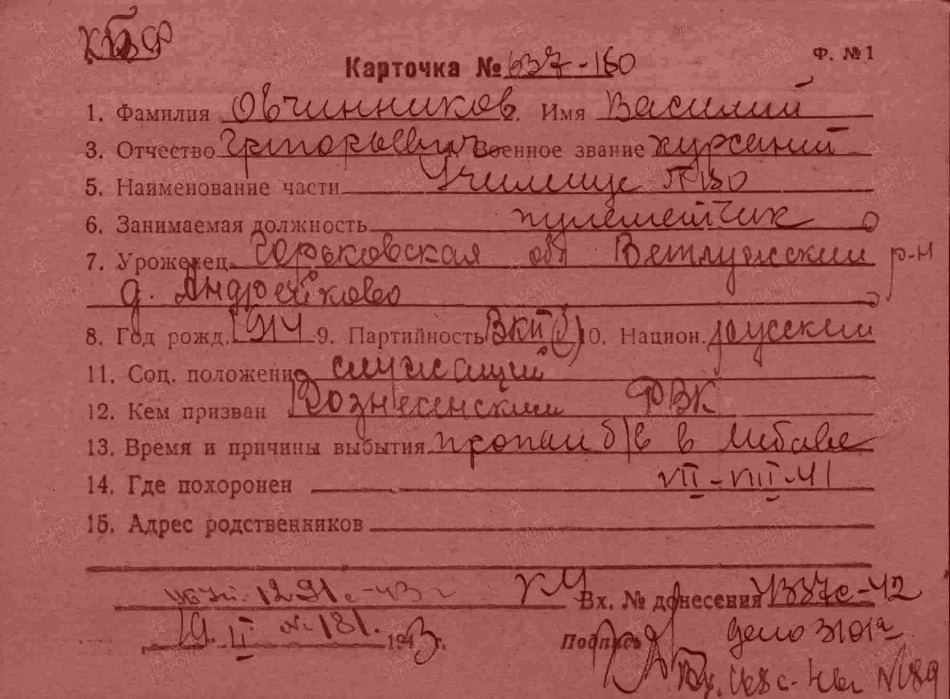 КБФ
Ф. №1
Карточка № 637-160
1. Фамилия Овчинников. Имя Василий
3. Отчество Григорьевич Военное звание курсант
5. Наименование части Училище ПВО
6. Занимаемая должность пулеметчик
7. Уроженец Горьковская обл Ветлужский р-н
д. Андрейково
8. Год рожд. 1914 9. Партийность ВКП(б) 10. Национ. русский
11. Соц. положение служащий
12. Кем призван Вознесенский РВК
13. Время и причины выбытия пропал б/в в Либаве
14. Где похоронен VII-VIII-41
15. Адрес родственников
1291с-43г
Вх. № донесения 1337с-42
19. II № 181. 1943г. Подпись дело 3101а